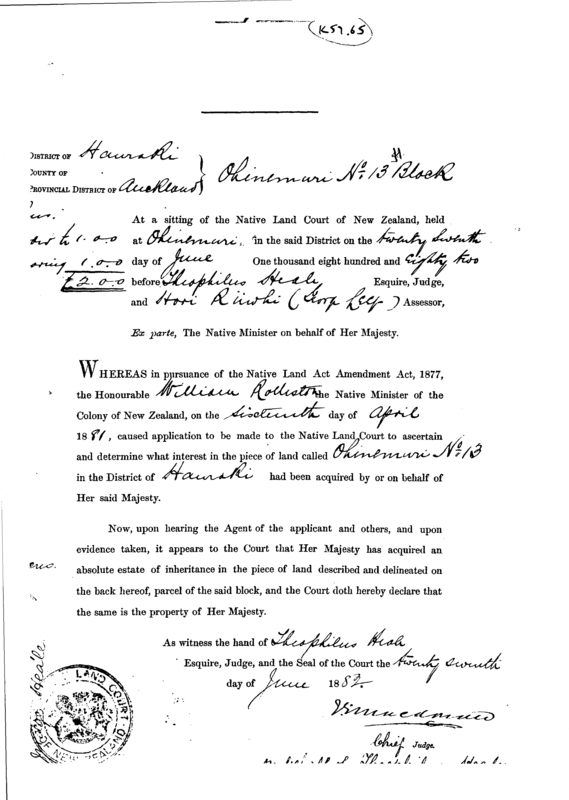 K57.65
DISTRICT OF Hauraki
COUNTY OF
PROVINCIAL DISTRICT OF Auckland
Ohinemuri No. 13 H Block
At a sitting of the Native Land Court of New Zealand, held
at Ohinemuri, in the said District on the twenty seventh
1.0.0
day of June One thousand eight hundred and eighty two
1.0.0
before Theophilus Heale Esquire, Judge,
£2.0.0
and Hori Assessor,
Ex parte, The Native Minister on behalf of Her Majesty.
WHEREAS in pursuance of the Native Land Act Amendment Act, 1877,
the Honourable William Rolleston the Native Minister of the
Colony of New Zealand, on the sixteenth day of April
1881, caused application to be made to the Native Land Court to ascertain
and determine what interest in the piece of land called Ohinemuri No. 13
in the District of Hauraki had been acquired by or on behalf of
Her said Majesty.
Now, upon hearing the Agent of the applicant and others, and upon
evidence taken, it appears to the Court that Her Majesty has acquired an
absolute estate of inheritance in the piece of land described and delineated on
the back hereof, parcel of the said block, and the Court doth hereby declare that
the same is the property of Her Majesty.
As witness the hand of Theophilus Heale
Esquire, Judge, and the Seal of the Court the twenty seventh
day of June 1882
LAND COURT OF NEW ZEALAND
Chief Judge.